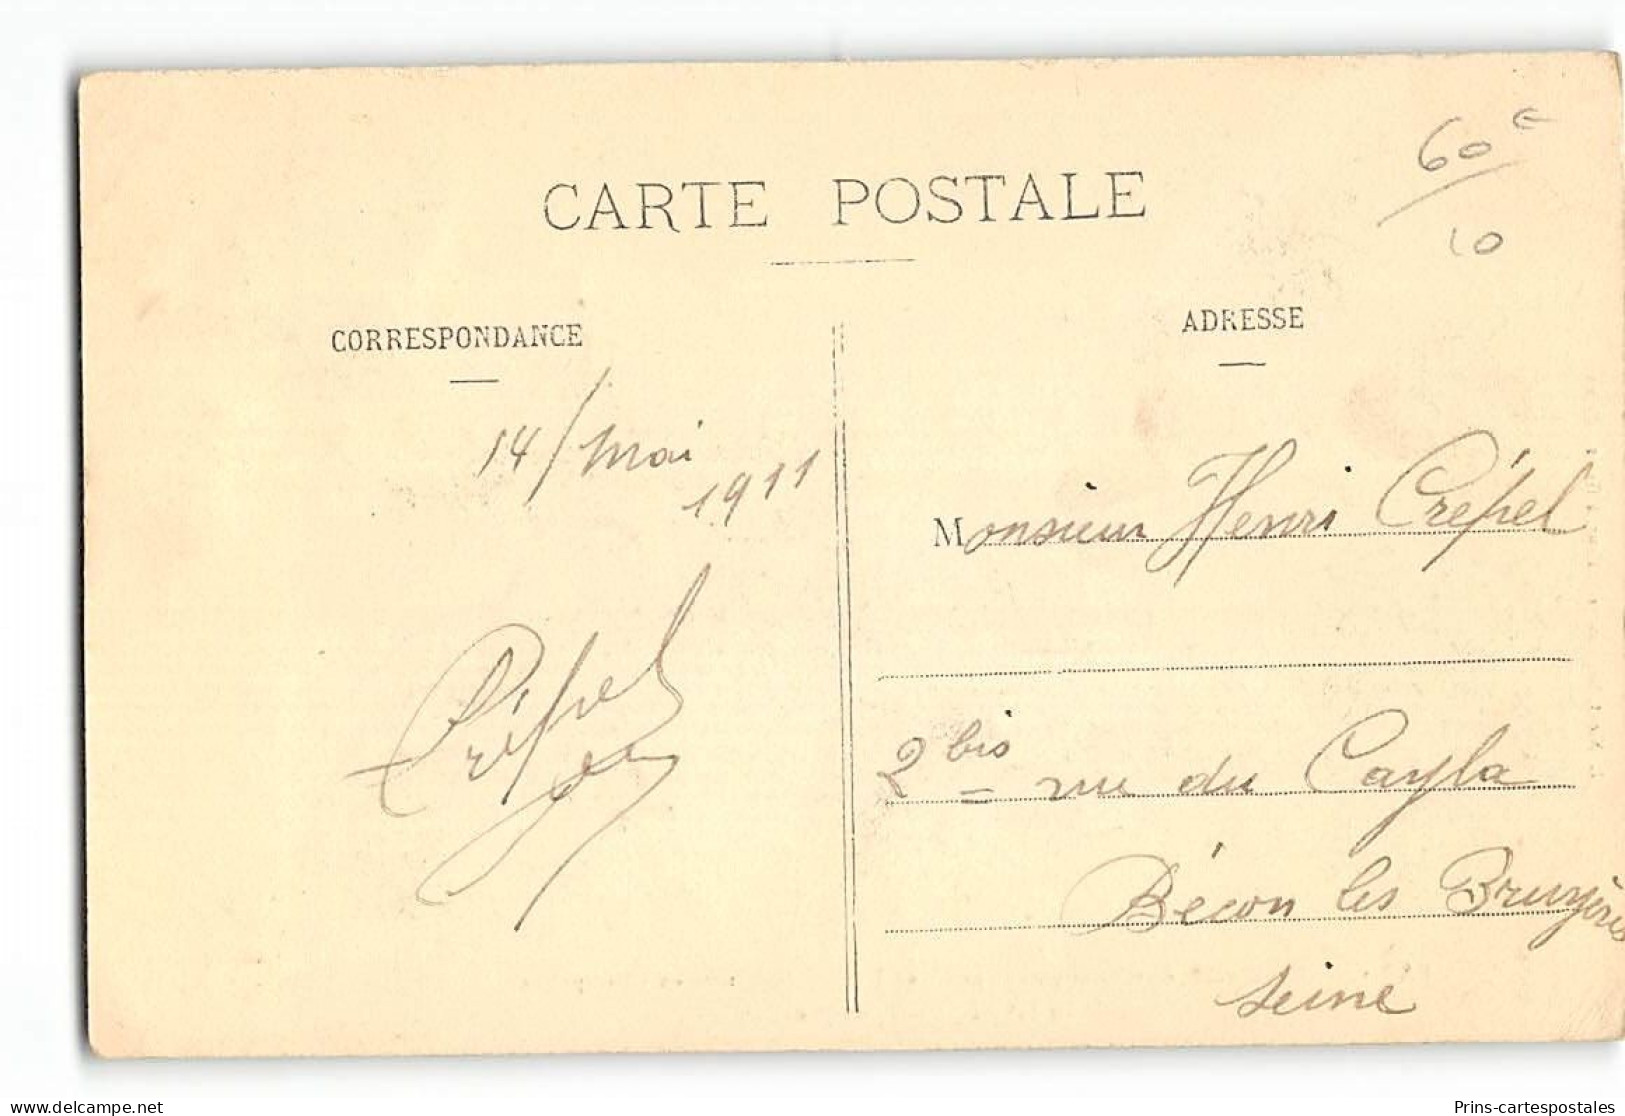 60 €
10
CARTE POSTALE
CORRESPONDANCE
14/Mai
1911
Crépel
ADRESSE
Monsieur Henri Crépel
2 bis rue du Cayla
Bécon les Bruyères
Seine
www.delcampe.net
Prins-cartespostales